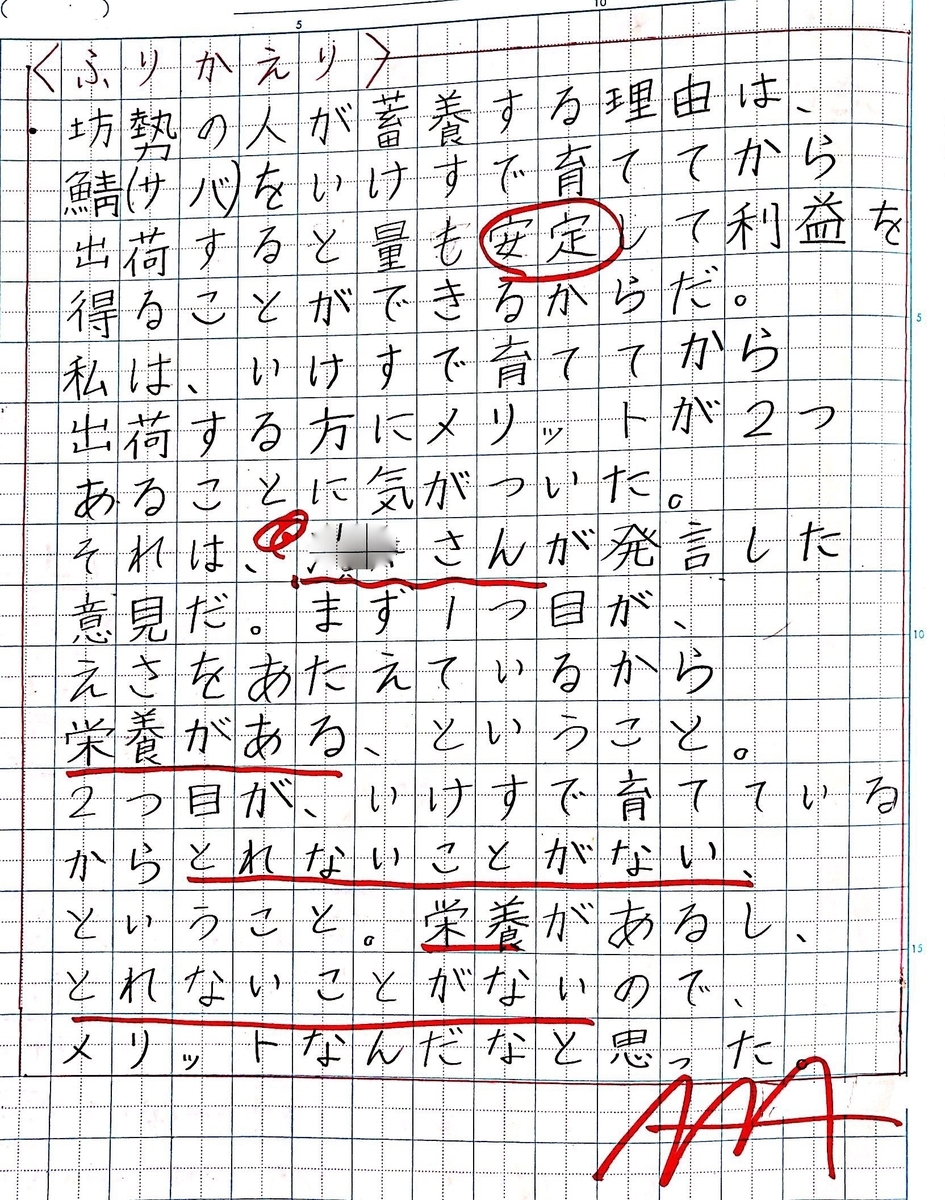 10
5
<ふりかえり>
坊勢の人が蓄養する理由は、
鯖(サバ)をいけすで育ててから
出荷すると量も安定して利益を
得ることができるからだ。
5
私は、いけすで育ててから
出荷する方にメリットが2つ
あることに気がついた。
それは、さんが発言した
意見だ。まず1つ目が、
10
えさをあたえているから
栄養がある、ということ。
2つ目が、いけすで育てている
からとれないことがない、
ということ。栄養があるし、
15
とれないことがないので、
メリットなんだなと思った。
AAA